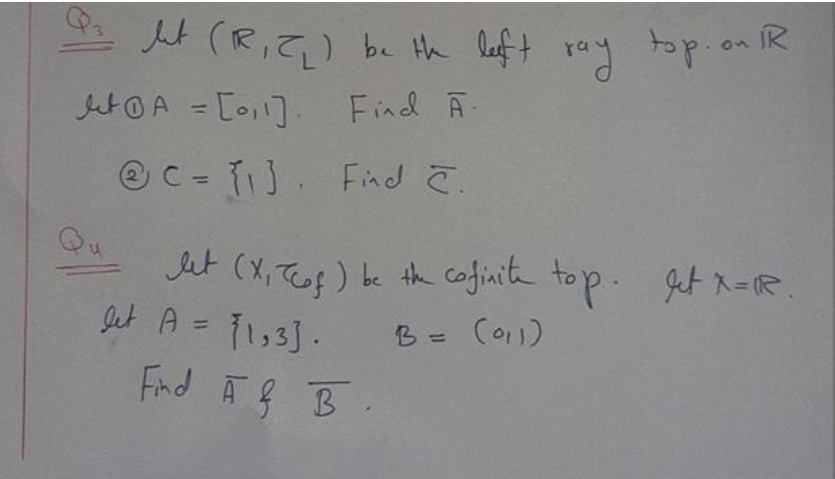 Q3 let (ℝ, τ_L) be the left ray top. on ℝ
let ① A = [0,1]. Find Ā.
② C = {1}. Find C̄.
Q4
let (X, τcof) be the cofinite top. let X=ℝ.
let A = {1,3}. B = (0,1)
Find Ā & B̄.